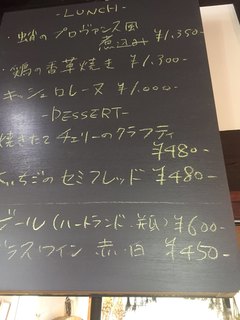 -LUNCH-
・蛸のプロヴァンス風
煮込み ¥1.350-
・鶏の香草焼き ¥1.300-
キッシュロレーヌ ¥1.000-
-DESSERT-
焼きたてチェリーのクラフティ
¥480-
いちごのセミフレッド ¥480-
ビール(ハートランド 瓶) ¥600-
グラスワイン 赤・白 ¥450-